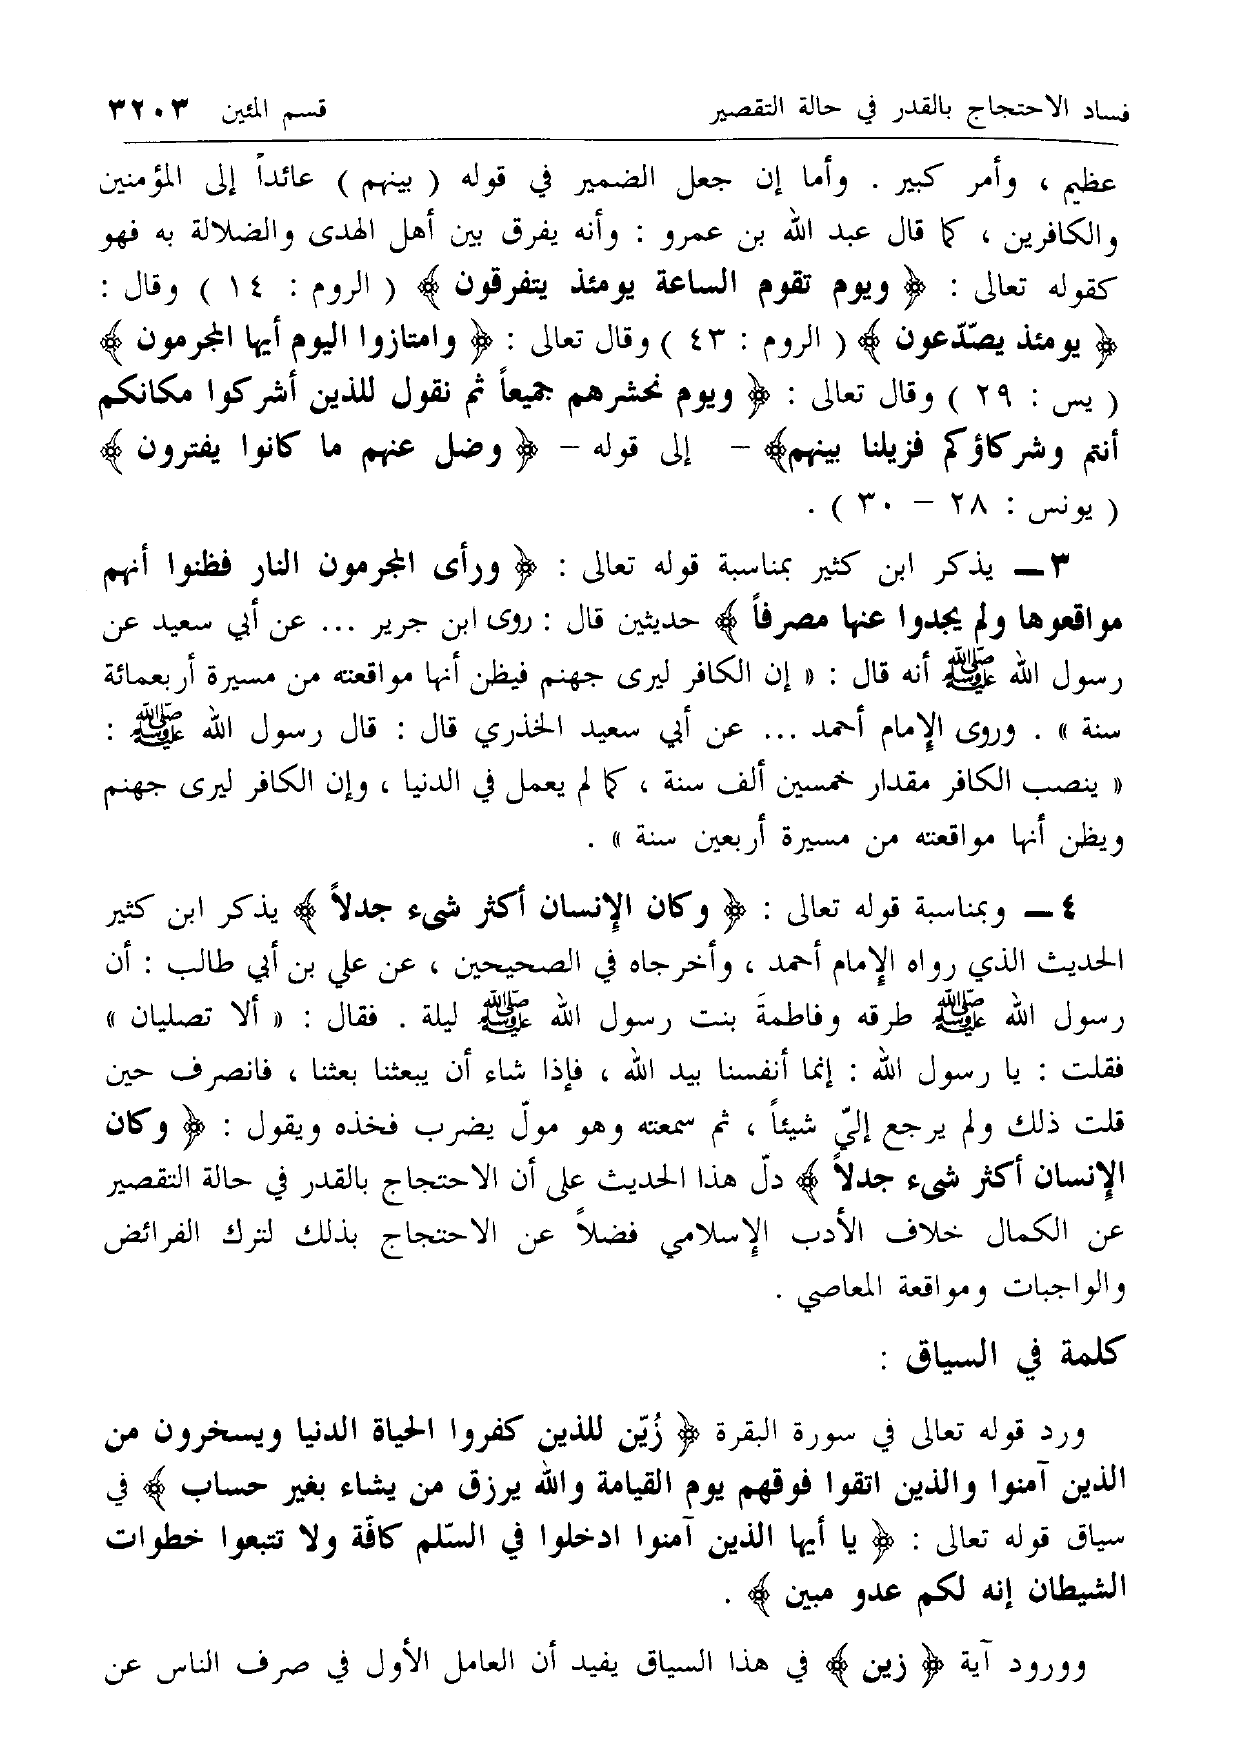 فساد الاحتجاج بالقدر في حالة التقصير قسم المئين ٣٢٠٣
عظيم ، وأمر كبير . وأما إن جعل الضمير في قوله ( بينهم ) عائداً إلى المؤمنين
والكافرين ، كما قال عبد الله بن عمرو : وأنه يفرق بين أهل الهدى والضلالة به فهو
كقوله تعالى : ﴿ ويوم تقوم الساعة يومئذ يتفرقون ﴾ ( الروم : ١٤ ) وقال :
﴿ يومئذ يصّدّعون ﴾ ( الروم : ٤٣ ) وقال تعالى : ﴿ وامتازوا اليوم أيها المجرمون ﴾
( يس : ٢٩ ) وقال تعالى : ﴿ ويوم نحشرهم جميعاً ثم نقول للذين أشركوا مكانكم
أنتم وشركاؤكم فزيلنا بينهم﴾ – إلى قوله – ﴿ وضل عنهم ما كانوا يفترون ﴾
( يونس : ٢٨ – ٣٠ ) .
٣ – يذكر ابن كثير بمناسبة قوله تعالى : ﴿ ورأى المجرمون النار فظنوا أنهم
مواقعوها ولم يجدوا عنها مصرفاً ﴾ حديثين قال : روى ابن جرير ... عن أبي سعيد عن
رسول الله ﷺ أنه قال : « إن الكافر ليرى جهنم فيظن أنها مواقعته من مسيرة أربعمائة
سنة » . وروى الإمام أحمد ... عن أبي سعيد الخذري قال : قال رسول الله ﷺ :
« ينصب الكافر مقدار خمسين ألف سنة ، كما لم يعمل في الدنيا ، وإن الكافر ليرى جهنم
ويظن أنها مواقعته من مسيرة أربعين سنة » .
٤ – وبمناسبة قوله تعالى : ﴿ وكان الإنسان أكثر شيء جدلاً ﴾ يذكر ابن كثير
الحديث الذي رواه الإمام أحمد ، وأخرجاه في الصحيحين ، عن علي بن أبي طالب : أن
رسول الله ﷺ طرقه وفاطمةَ بنت رسول الله ﷺ ليلة . فقال : « ألا تصليان »
فقلت : يا رسول الله : إنما أنفسنا بيد الله ، فإذا شاء أن يبعثنا بعثنا ، فانصرف حين
قلت ذلك ولم يرجع إليّ شيئاً ، ثم سمعته وهو مولّ يضرب فخذه ويقول : ﴿ وكان
الإنسان أكثر شيء جدلاً ﴾ دلّ هذا الحديث على أن الاحتجاج بالقدر في حالة التقصير
عن الكمال خلاف الأدب الإسلامي فضلاً عن الاحتجاج بذلك لترك الفرائض
والواجبات ومواقعة المعاصي .
كلمة في السياق :
ورد قوله تعالى في سورة البقرة ﴿ زُيّن للذين كفروا الحياة الدنيا ويسخرون من
الذين آمنوا والذين اتقوا فوقهم يوم القيامة والله يرزق من يشاء بغير حساب ﴾ في
سياق قوله تعالى : ﴿ يا أيها الذين آمنوا ادخلوا في السّلم كافّة ولا تتبعوا خطوات
الشيطان إنه لكم عدو مبين ﴾ .
وورود آية ﴿ زين ﴾ في هذا السياق يفيد أن العامل الأول في صرف الناس عن